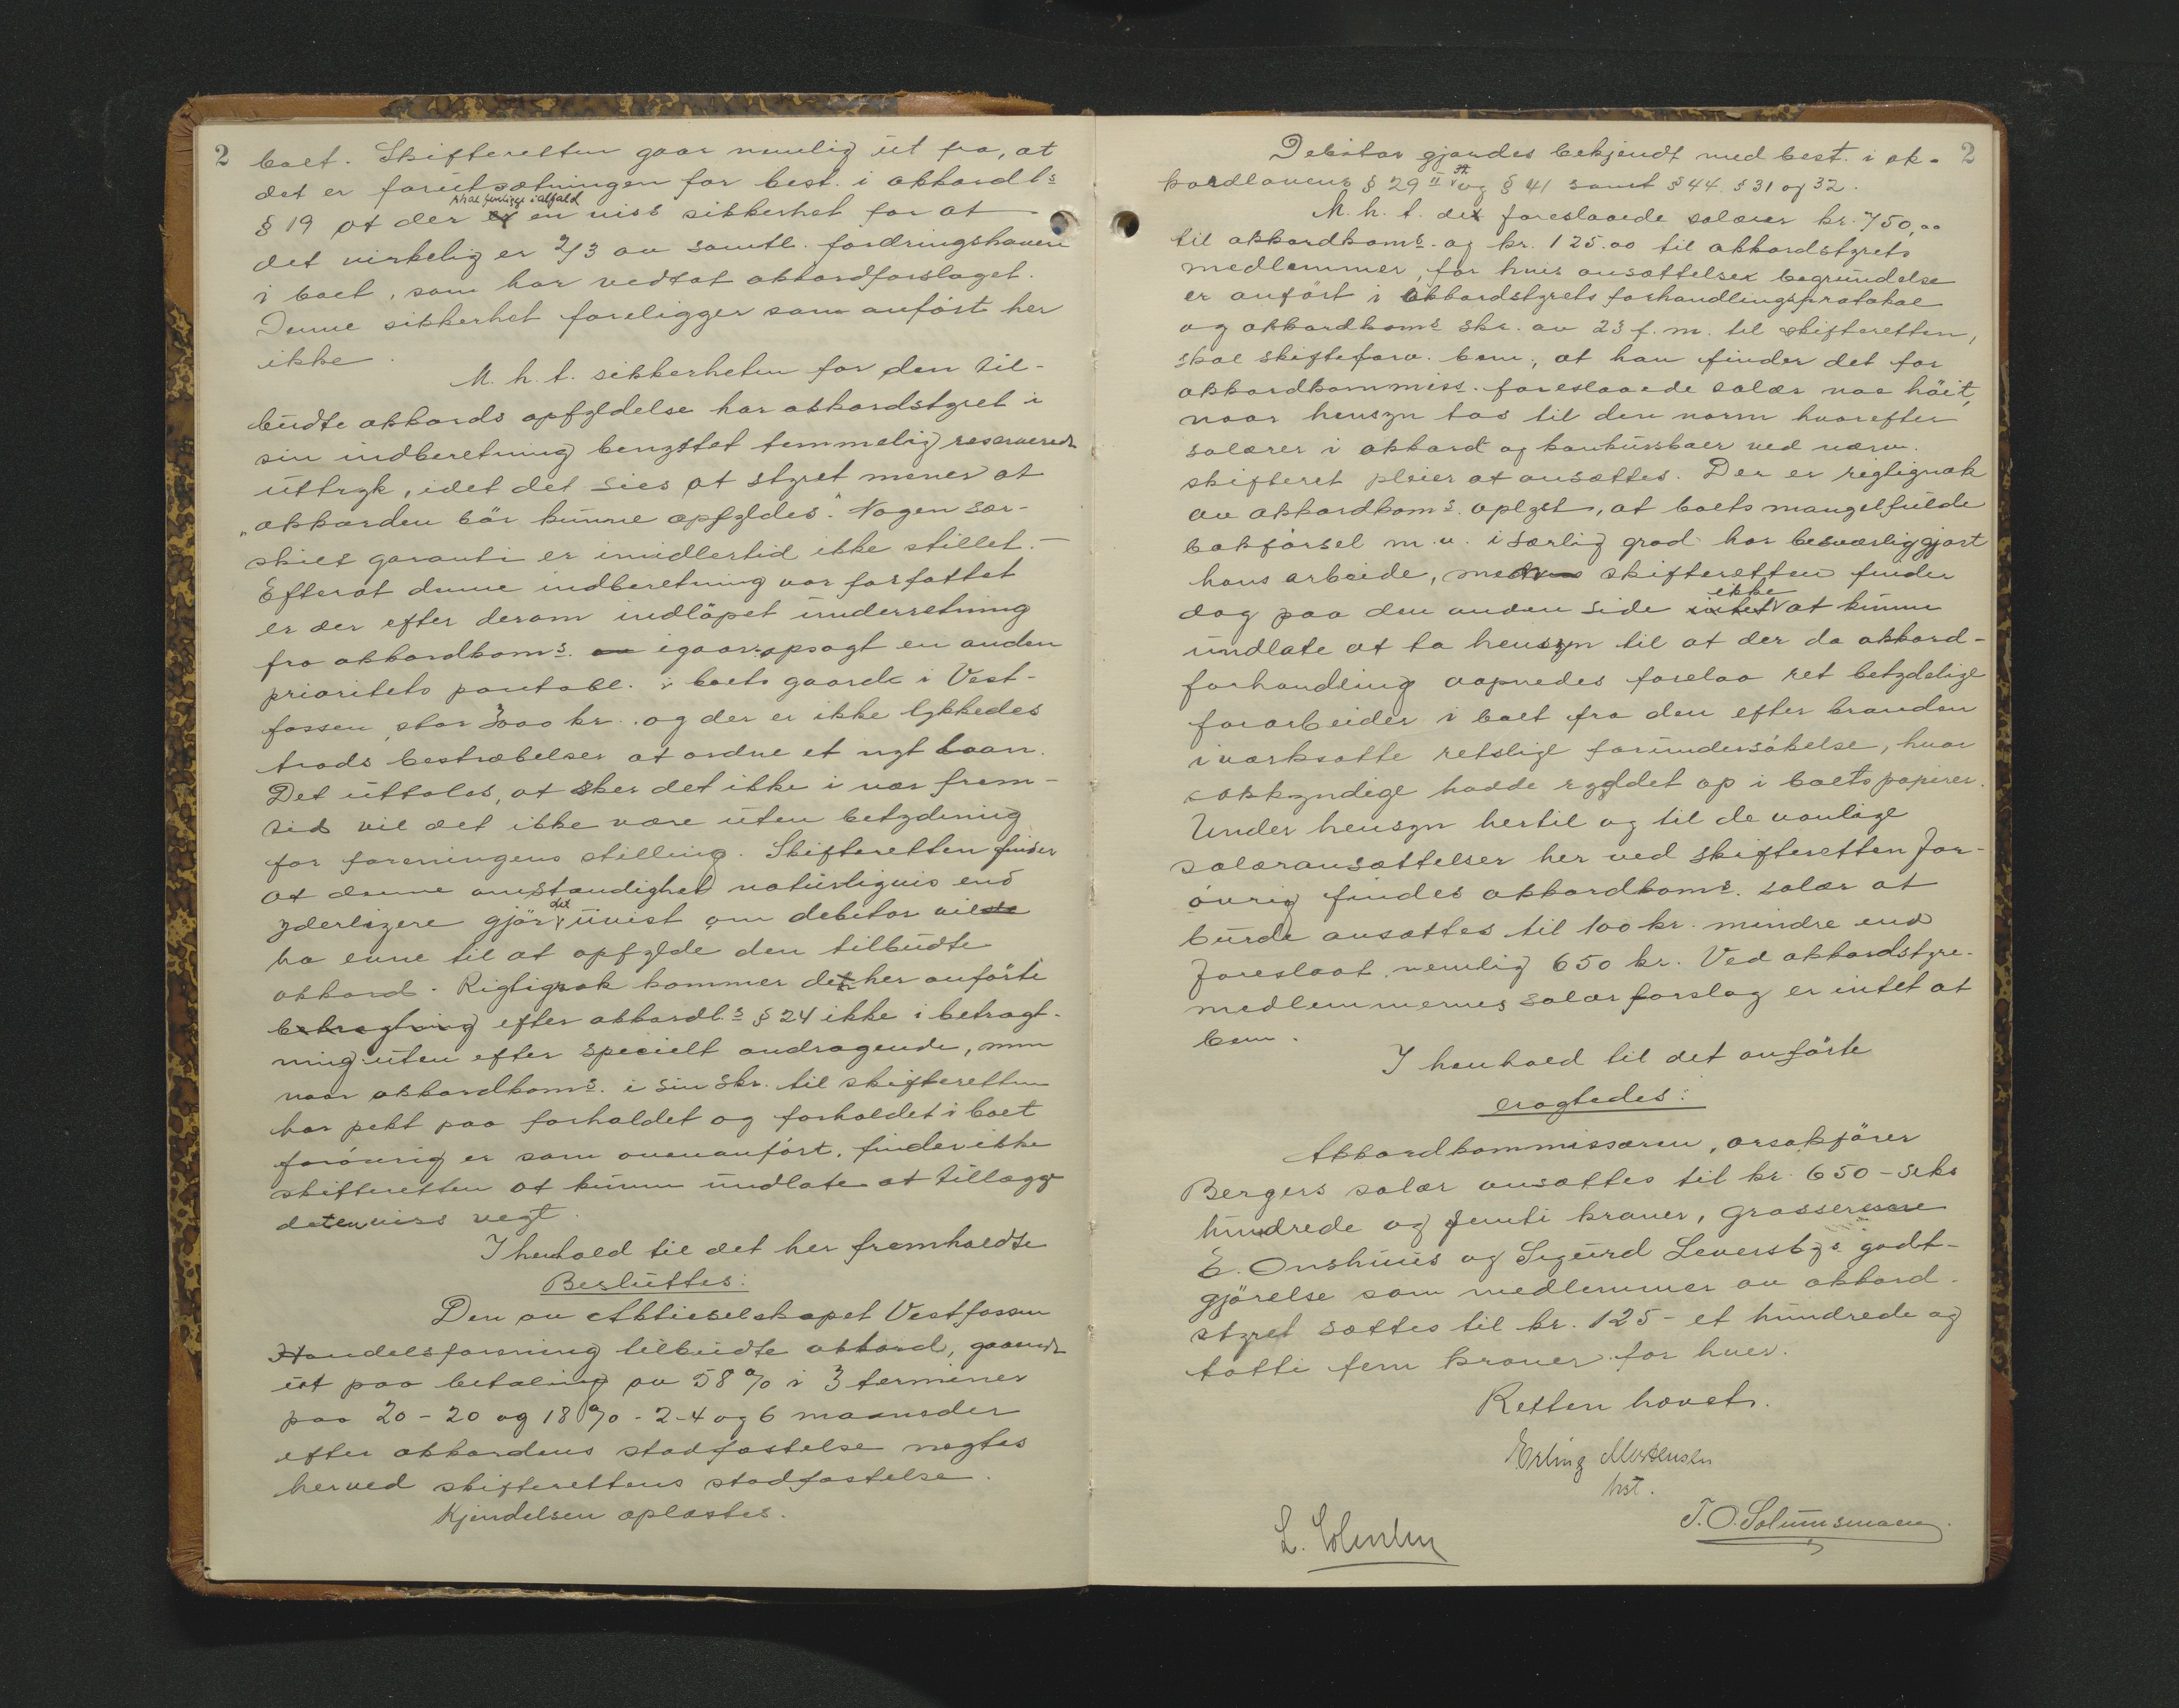 2
boet. Skifteretten gaar nemlig ut fra, at
det er forutsætningen for best. i akkordl.s
skal foreligge ialfald
§ 19 at der er en viss sikkerhet for at
det virkelig er 2/3 av samtl. fordringshavere
i boet, som har vedtat akkordforslaget.
Denne sikkerhet foreligger som anført her
ikke.
M. h. t. sikkerheten for den til-
budte akkords opfyldelse har akkordstyret i
sin indberetning benyttet temmelig reserverede
uttryk, idet det sies at styret mener at
„akkorden bör kunne opfyldes". Nogen sær-
skilt garanti er imidlertid ikke stillet. -
Efterat denne indberetning var forfattet
er der efter derom indlöpet underretning
fra akkordkoms. igaar opsagt en anden
prioritets pantobl. i boets gaard i Vest-
fossen, stor 3000 kr. og der er ikke lykkedes
trods bestræbelser at ordne et nyt laan.
Det uttales, at sker det ikke i nær frem-
tid vil det ikke være uten betydning
for foreningens stilling. Skifteretten finder
at denne omstændighet naturligvis end
yderligere gjör det uvist om debitor vil
ha evne til at opfylde den tilbudte
akkord. Rigtignok kommer det her anförte
betragtning efter akkordl.s § 24 ikke i betragt-
ning uten efter specielt andragende, men
naar akkordkoms. i sin skr. til skifteretten
har pekt paa forholdet og forholdet i boet
forövrig er som ovenanfört, finder ikke
skifteretten at kunne undlate at tillægge
det en viss vegt.
I henhold til det her fremholdte
Besluttes:
Den av Aktieselskapet Vestfossen
Handelsforening tilbudte akkord, gaaende
ut paa betaling av 58 % i 3 terminer
paa 20 - 20 og 18 % - 2 - 4 og 6 maaneder
efter akkordens stadfæstelse negtes
herved skifterettens stadfæstelse.
Kjendelsen oplæstes.
2
Debitor gjordes bekjendt med best. i ak-
kordlovens § 29 II og § 41 samt § 44. § 31 og 32.
M. h. t. de foreslaaede salærer kr. 750,00
til akkordkoms. og kr. 125.00 til akkordstyrets
medlemmer, for hvis ansættelse begrundelse
er anfört i akkordstyrets forhandlingsprotokol
og akkordkoms. skr. av 23 f. m. til skifteretten,
skal skifteforv. bem., at han finder det for
akkordkommiss. foreslaaede salær noe höit,
naar hensyn tas til den norm hvorefter
salærer i akkord og konkursboer ved nærv.
skifteret pleier at ansættes. Der er rigtignok
av akkordkoms. oplyst, at boets mangelfulde
bokförsel m. v. i særlig grad har besværliggjort
hans arbeide, men skifteretten finder
dog paa den anden side ikke at kunne
undlate at ta hensyn til at der da akkord-
forhandling aapnedes forelaa ret betydelige
forarbeider i boet fra den efter branden
iverksatte retslige forundersökelse, hvor
sakkyndige hadde ryddet op i boets papirer.
Under hensyn hertil og til de vanlige
salæransættelser her ved skifteretten for-
övrig findes akkordkoms. salær at
burde ansættes til 100 kr. mindre end
foreslaat nemlig 650 kr. Ved akkordstyre-
medlemmernes salær forslag er intet at
bem.
I henhold til det anförte
eragtedes:
Akkordkommissæren, orsakförer
Bergers salær ansættes til kr. 650 - seks
hundrede og femti kroner, grosserene
E. Onshuus og Sigurd Leversbys godt-
gjörelse som medlemmer av akkord-
styret sættes til kr. 125 - et hundrede og
totti fem kroner for hver.
Retten hævet.
Erling Mortensen
kst.
T. O. Solumsmoen
L.